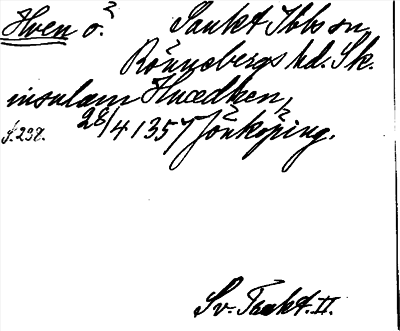 Hven ö. Sankt Ibbs sn,
Rönnebergs hd. Sk.
insulam Hwedhen,
s. 238. 28/4 1357 Jönköping.
Sv. Trakt. II.